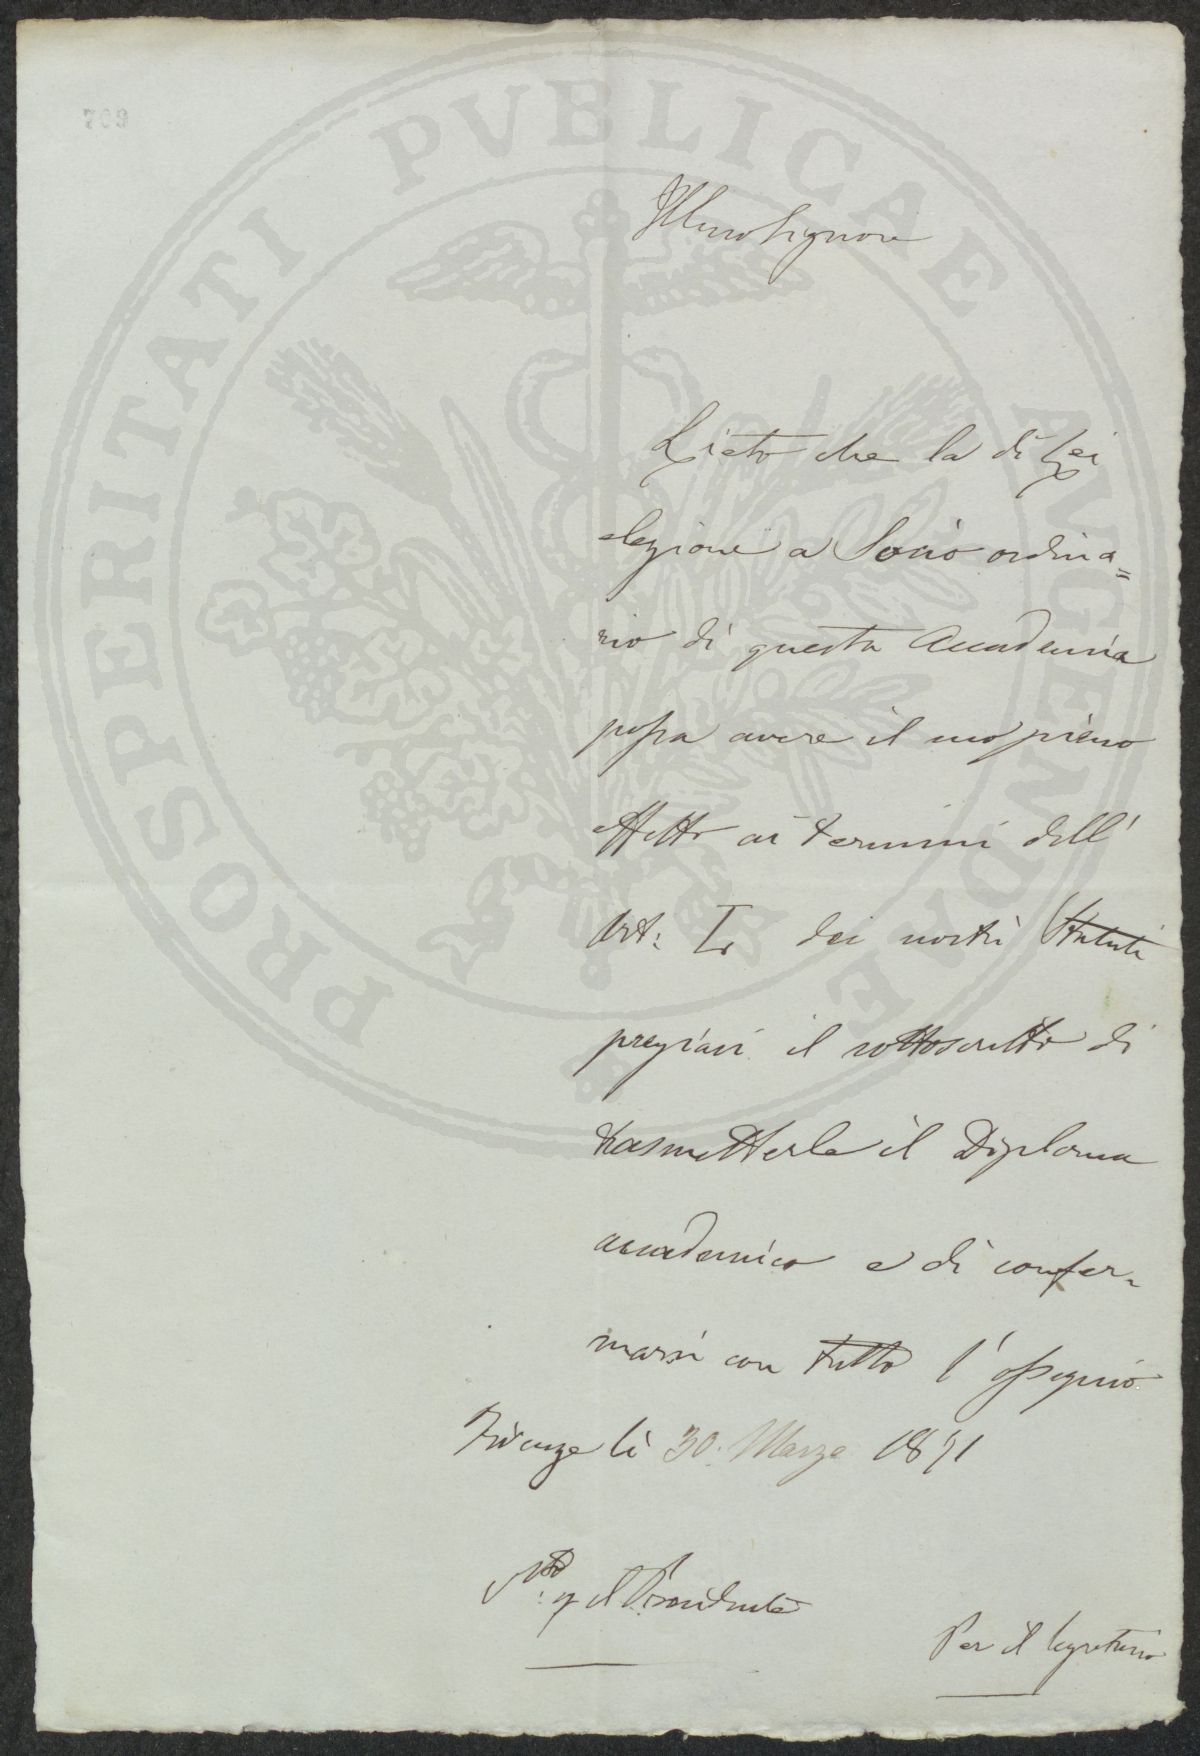 709
PROSPERITATI PVBLICAE AVGENDAE
Illmo Signore
Lieto che la di Lei
elezione a Socio ordina=
rio di questa Accademia
possa avere il suo pieno
effetto ai termini dell'
Art: I. dei nostri Statuti
pregiasi il sottoscritto di
trasmetterle il Diploma
accademico e di confer-
marsi con tutto l'ossequio
Firenze li 30. Marzo 1871
il Presidente
Per il Segretario